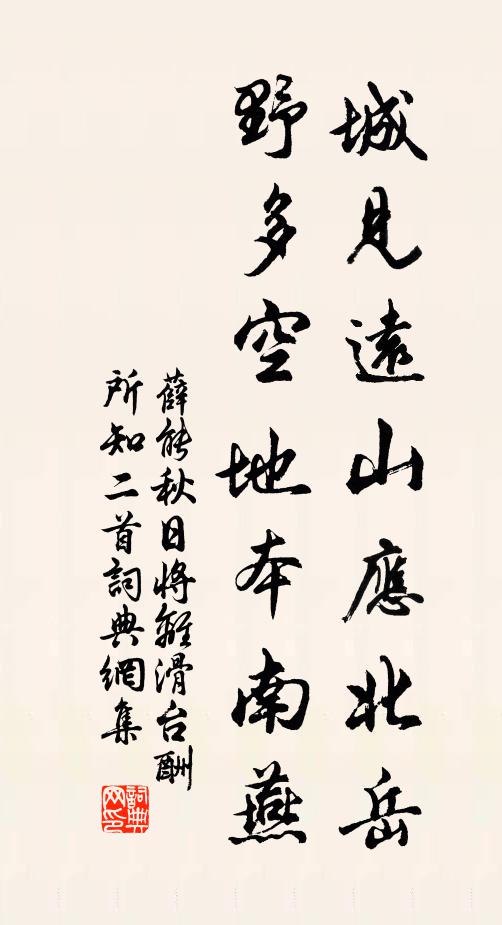 城見遠山應北岳
野多空地本南燕
薛能秋日將離滑台酬
所知二首詞典網集
詞典
网印